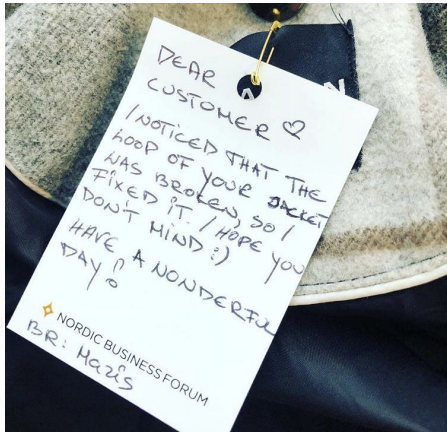 DEAR
CUSTOMER ♡
I NOTICED THAT THE
LOOP OF YOUR JACKET
WAS BROKEN, SO I
FIXED IT. I HOPE YOU
DON'T MIND :)
HAVE A NONDERFUL
DAY!
NORDIC BUSINESS FORUM
BR: Mazis